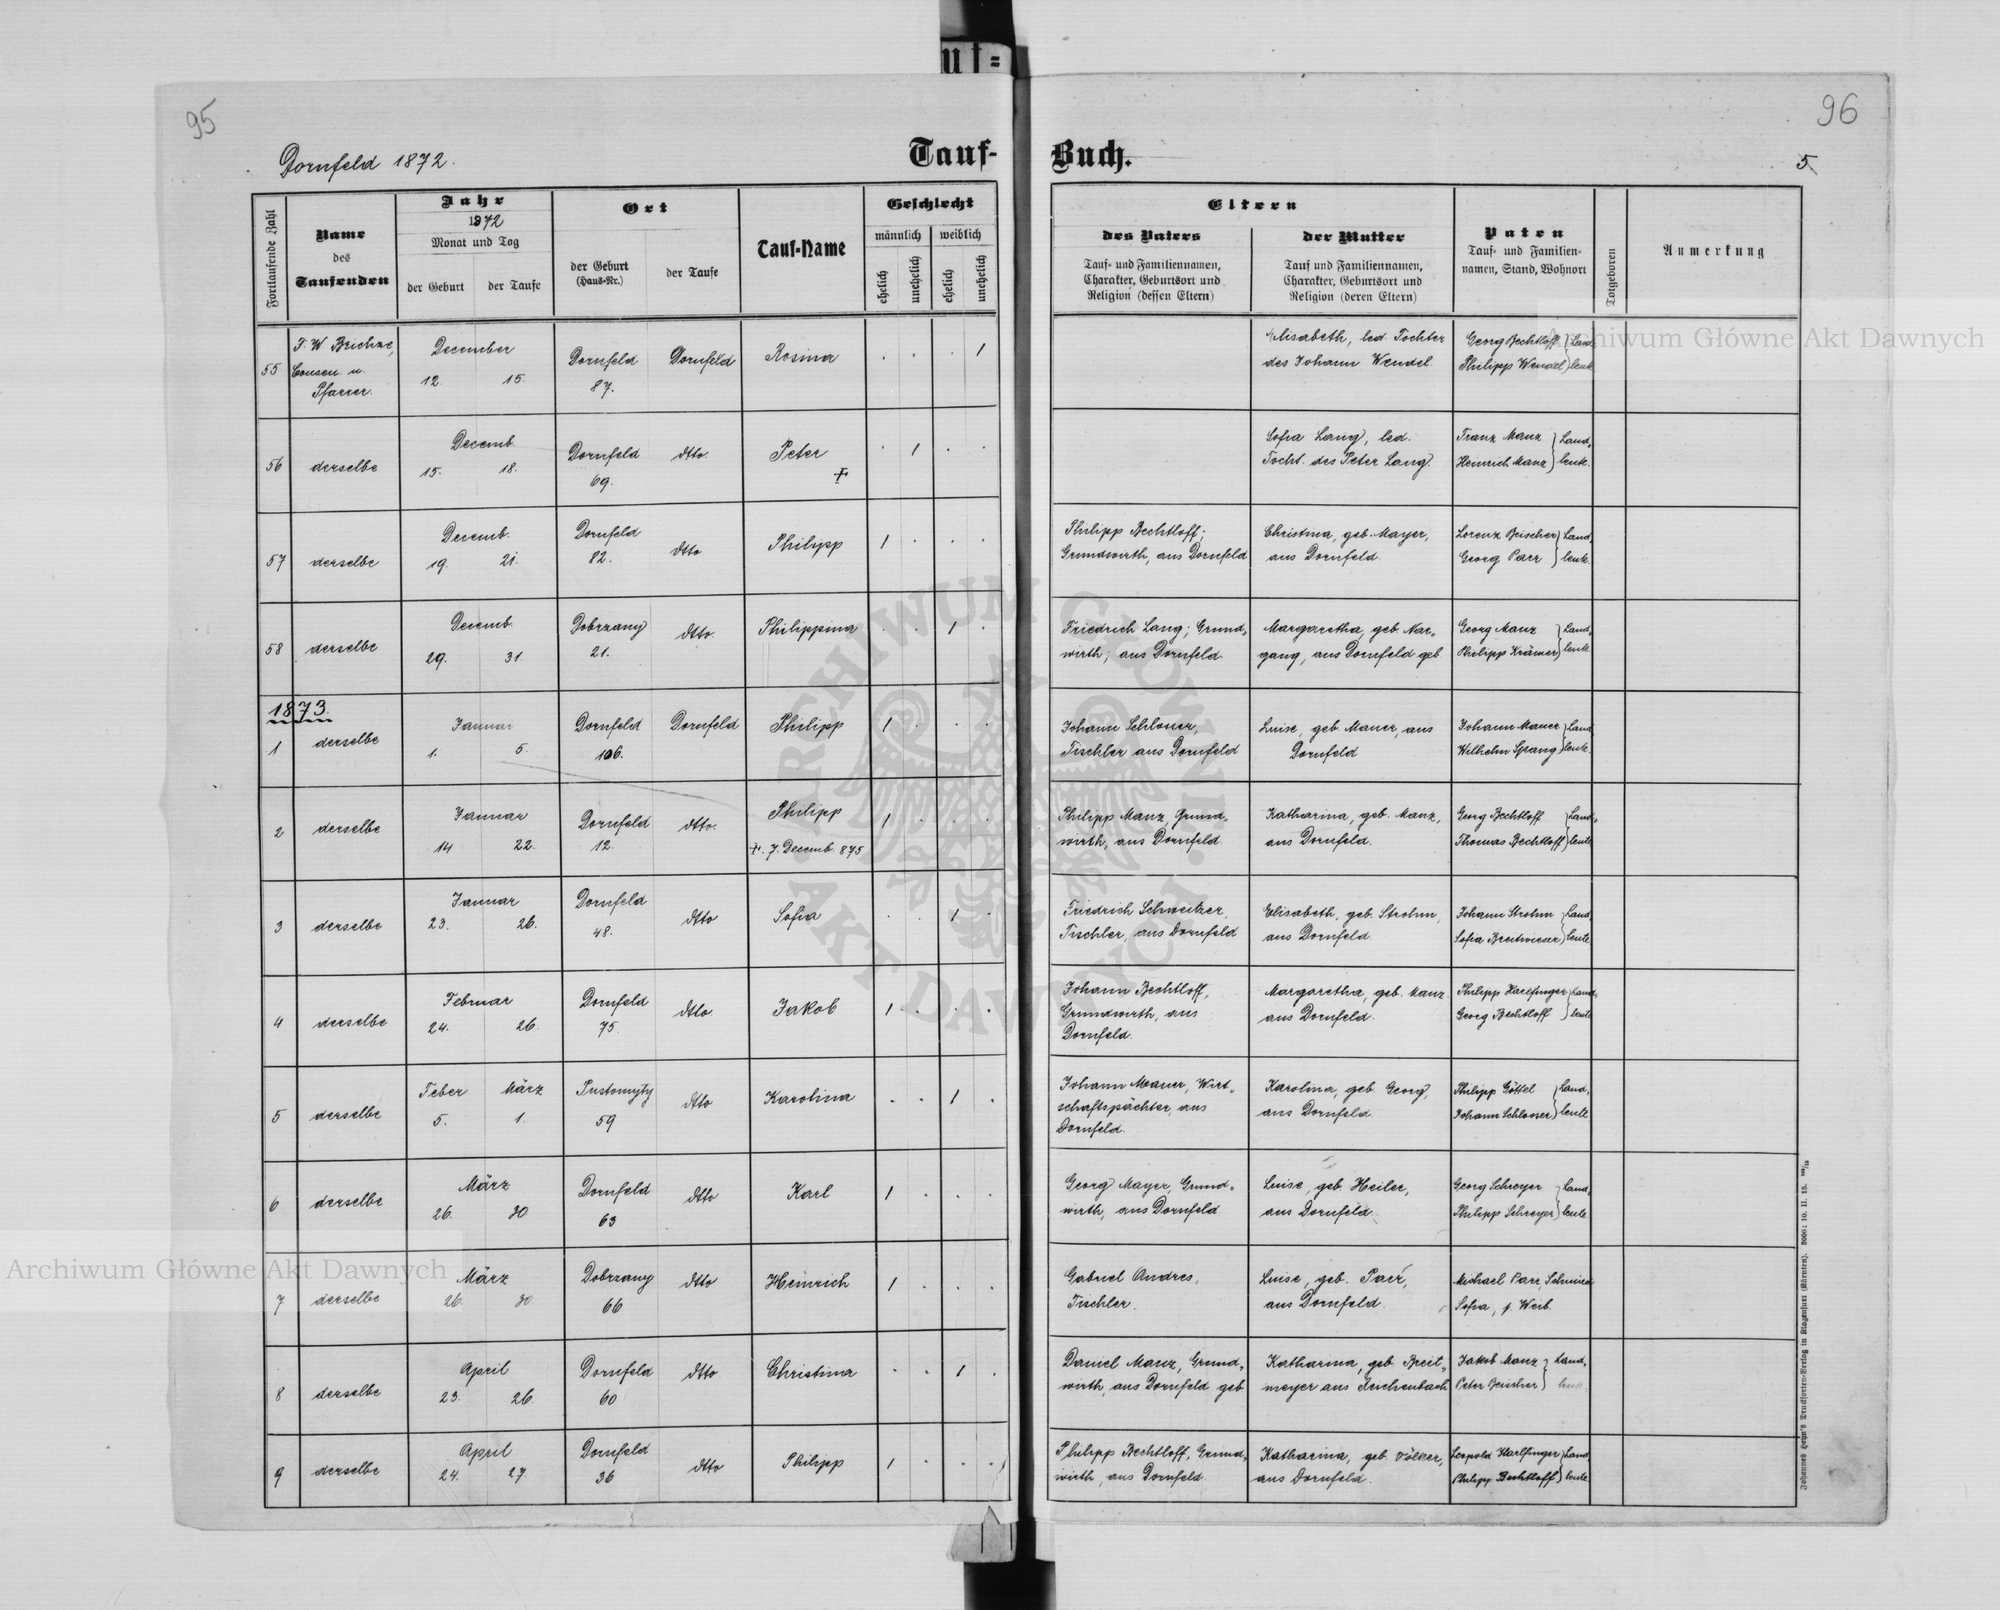 ut=
95
96
Dornfeld 1872.
Tauf-
Buch.
5.
Fortlaufende Zahl
Name
des
Taufenden
Jahr
1872
Monat und Tag
der Geburt
der Taufe
Ort
der Geburt
(Haus-Nr.)
der Taufe
Tauf-Name
Geschlecht
männlich
weiblich
ehelich
unehelich
ehelich
unehelich
Eltern
des Vaters
Tauf- und Familiennamen,
Charakter, Geburtsort und
Religion (dessen Eltern)
der Mutter
Tauf und Familiennamen,
Charakter, Geburtsort und
Religion (deren Eltern)
Paten
Tauf- und Familien-
namen, Stand, Wohnort
Totgeboren
Anmerkung
55 F. W. Brichze, December Dornfeld Dornfeld Rosina 1 Elisabeth, led. Tochter Georg Bechtloff Land
Consen. u. 12. 15. 87. des Johann Wendel. Philipp Wendel leut
Pfarrer.
56 derselbe Decemb. Dornfeld dtto. Peter 1 Sofia Lang, led. Franz Manz Land,
15. 18. 69. Tocht. des Peter Lang. Heinrich Manz leute.
57 derselbe Decemb. Dornfeld dtto Philipp 1 Philipp Bechtloff; Christina, geb. Mayer, Lorenz Beischer Land,
19. 21. 82. Grundwirth, aus Dornfeld aus Dornfeld. Georg Parr leute.
58 derselbe Decemb. Dobrzany dtto. Philippina 1 Friedrich Lang; Grund= Margaretha, geb. Nar= Georg Manz Land,
29. 31. 21. wirth; aus Dornfeld. gang, aus Dornfeld geb. Philipp Krämer leute
1873.
1 derselbe Januar Dornfeld Dornfeld Philipp 1 Johann Schloner, Luise, geb. Mauer, aus Johann Mauer Land
1. 5. 106. Tischler aus Dornfeld Dornfeld Wilhelm Sprang leute.
2 derselbe Januar Dornfeld dtto. Philipp 1 Philipp Manz, Grund= Katharina, geb. Manz, Georg Bechtloff Land=
14 22. 12. +. 7. Decemb. 875 wirth, aus Dornfeld. aus Dornfeld. Thomas Bechtloff leute
3 derselbe Januar Dornfeld dtto Sofia 1 Friedrich Schweitzer, Elisabeth, geb. Strohm, Johann Strohm Land,
23. 26. 48. Tischler, aus Dornfeld aus Dornfeld. Sofia Breitwieser leute
4 derselbe Februar Dornfeld dtto Jakob 1 Johann Bechtloff, Margaretha, geb. Manz. Philipp Harlfinger Land=
24. 26. 75. Grundwirth, aus aus Dornfeld. Georg Bechtloff leute
Dornfeld.
5 derselbe Feber März Pustomyty dtto Karolina 1 Johann Mauer, Wirt= Karolina, geb. Georg, Philipp Göttel Land,
5. 1. 59 schaftspächter, aus aus Dornfeld. Johann Schloner leute
Dornfeld.
6 derselbe März Dornfeld dtto Karl 1 Georg Mayer, Grund= Luise, geb. Heiler, Georg Schreyer Land,
26. 30. 63 wirth, aus Dornfeld aus Dornfeld. Philipp Schreyer leute.
7 derselbe März Dobrzany dtto Heinrich 1 Gabriel Andres, Luise, geb. Parr, Michael Parr, Schmied
26. 30. 66 Tischler. aus Dornfeld. Sofia, s. Weib.
8 derselbe April Dornfeld dtto Christina 1 Daniel Manz, Grund= Katharina, geb. Breit= Jakob Manz Land,
23. 26. 60 wirth, aus Dornfeld geb. meyer aus Reichenbach Peter Beischer leute
9 derselbe April Dornfeld dtto Philipp 1 Philipp Bechtloff, Grund= Katharina, geb. Völker, Leopold Harlfinger Land
24. 27. 36 wirth, aus Dornfeld. aus Dornfeld. Philipp Bechtloff leute
Johannes Heyn's Drucksorten-Verlag in Klagenfurt (Kärnten).
Archiwum Główne Akt Dawnych
Archiwum Główne Akt Dawnych
ARCHIWUM GŁÓWNE
AKT DAWNYCH